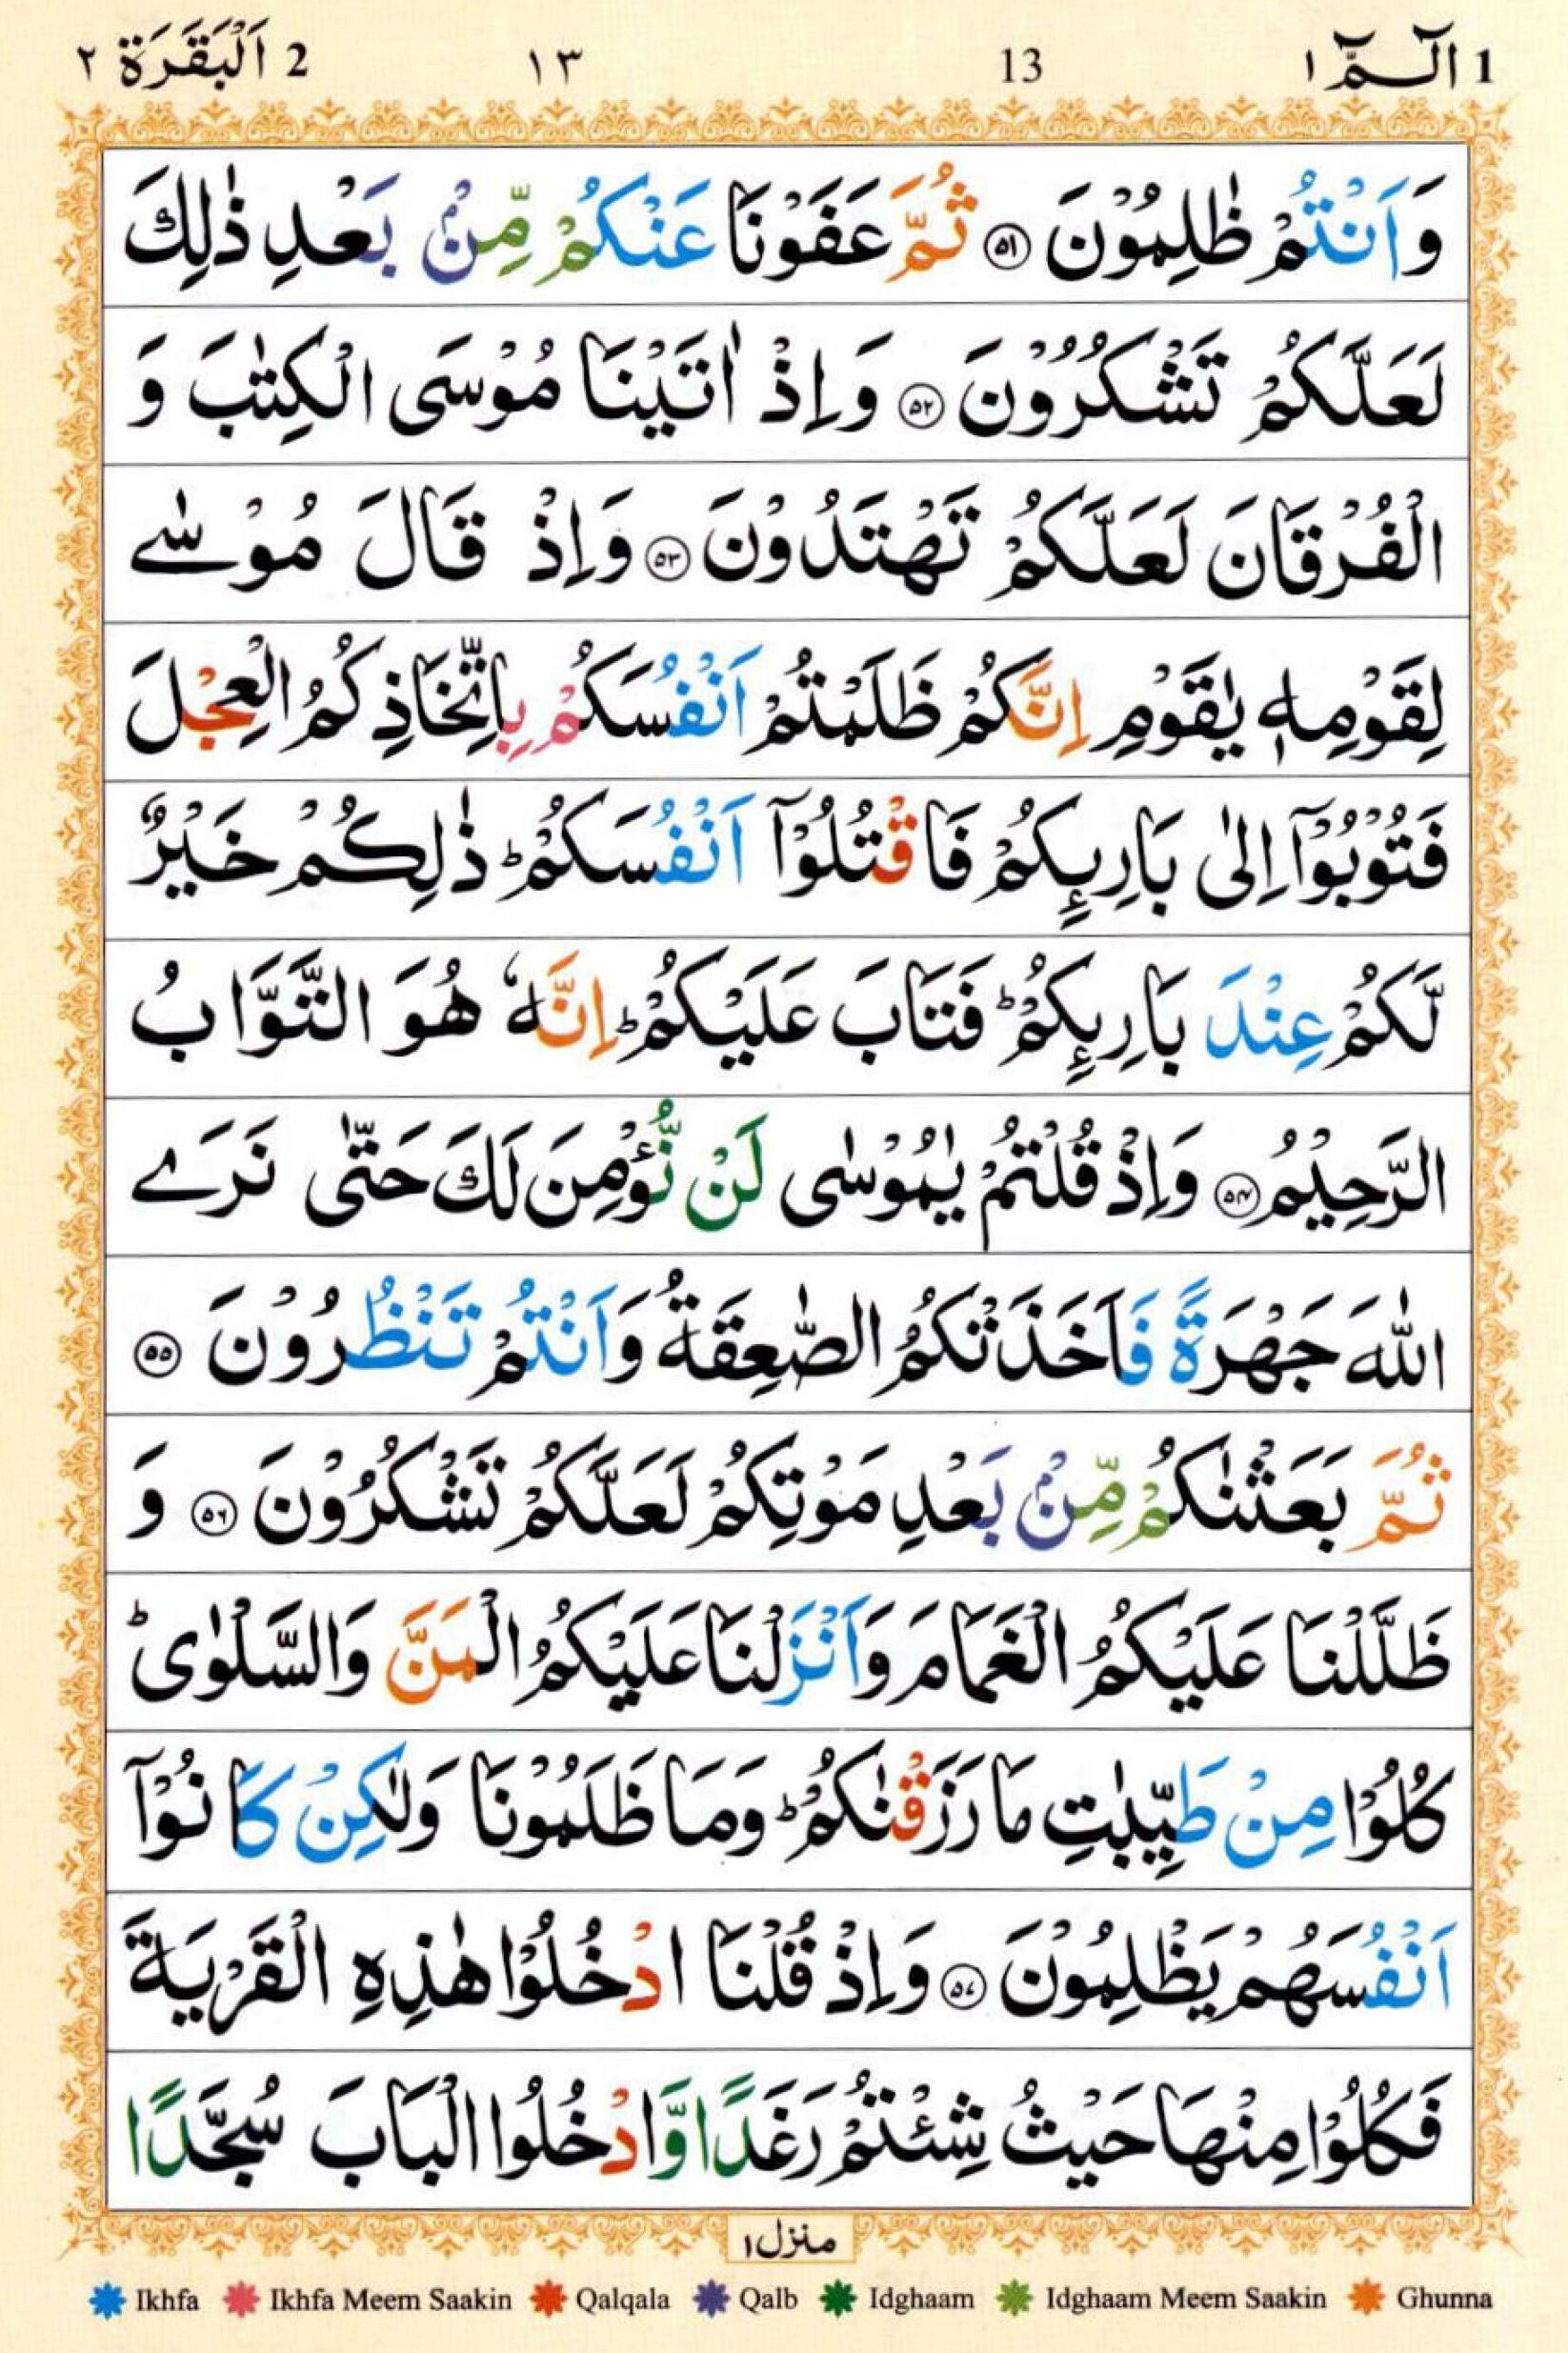 1 الٓـمّٓ ١ 13 ١٣ 2 اَلْبَقَرَة ٢
وَاَنْتُمْ ظٰلِمُوْنَ ۝٥١ ثُمَّ عَفَوْنَا عَنْكُمْ مِّنْۢ بَعْدِ ذٰلِكَ
لَعَلَّكُمْ تَشْكُرُوْنَ ۝٥٢ وَاِذْ اٰتَيْنَا مُوْسَى الْكِتٰبَ وَ
الْفُرْقَانَ لَعَلَّكُمْ تَهْتَدُوْنَ ۝٥٣ وَاِذْ قَالَ مُوْسٰے
لِقَوْمِهٖ يٰقَوْمِ اِنَّكُمْ ظَلَمْتُمْ اَنْفُسَكُمْ بِاتِّخَاذِكُمُ الْعِجْلَ
فَتُوْبُوْۤا اِلٰى بَارِىِٕكُمْ فَاقْتُلُوْۤا اَنْفُسَكُمْ ؕ ذٰلِكُمْ خَيْرٌ
لَّكُمْ عِنْدَ بَارِىِٕكُمْ ؕ فَتَابَ عَلَيْكُمْ ؕ اِنَّهٗ هُوَ التَّوَّابُ
الرَّحِيْمُ ۝٥٤ وَاِذْ قُلْتُمْ يٰمُوْسٰى لَنْ نُّؤْمِنَ لَكَ حَتّٰى نَرَے
اللّٰهَ جَهْرَةً فَاَخَذَتْكُمُ الصّٰعِقَةُ وَاَنْتُمْ تَنْظُرُوْنَ ۝٥٥
ثُمَّ بَعَثْنٰكُمْ مِّنْۢ بَعْدِ مَوْتِكُمْ لَعَلَّكُمْ تَشْكُرُوْنَ ۝٥٦ وَ
ظَلَّلْنَا عَلَيْكُمُ الْغَمَامَ وَاَنْزَلْنَا عَلَيْكُمُ الْمَنَّ وَالسَّلْوٰى ؕ
كُلُوْا مِنْ طَيِّبٰتِ مَا رَزَقْنٰكُمْ ؕ وَمَا ظَلَمُوْنَا وَلٰكِنْ كَانُوْۤا
اَنْفُسَهُمْ يَظْلِمُوْنَ ۝٥٧ وَاِذْ قُلْنَا ادْخُلُوْا هٰذِهِ الْقَرْيَةَ
فَكُلُوْا مِنْهَا حَيْثُ شِئْتُمْ رَغَدًا وَّادْخُلُوا الْبَابَ سُجَّدًا
منزل ١
Ikhfa Ikhfa Meem Saakin Qalqala Qalb Idghaam Idghaam Meem Saakin Ghunna